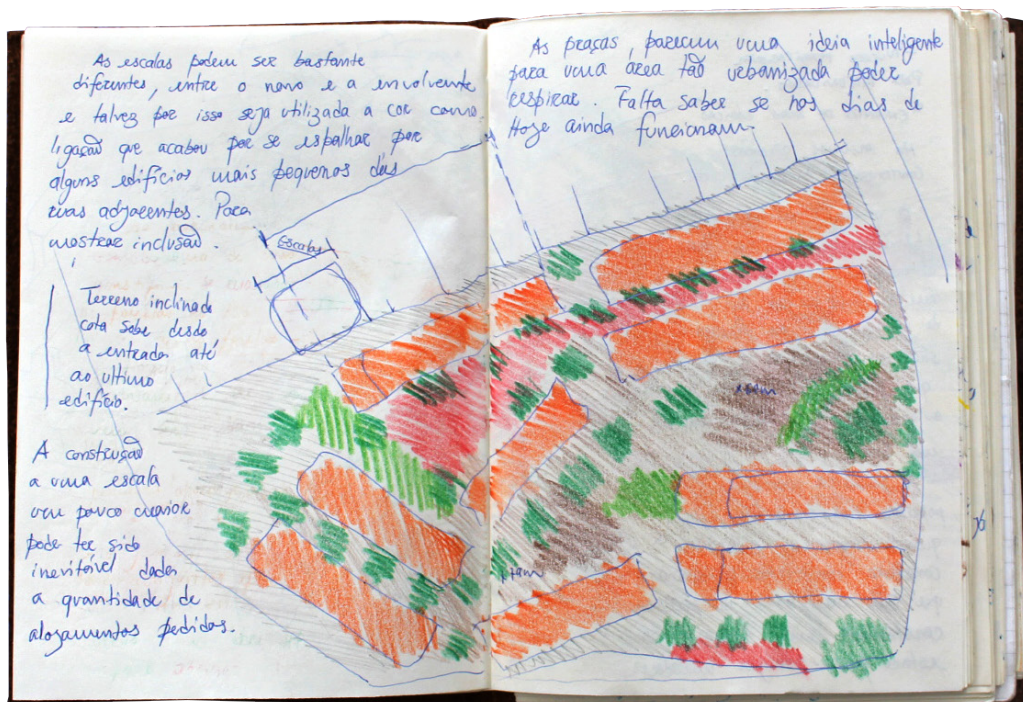 As escalas podem ser bastante
diferentes, entre o novo e a envolvente
e talvez por isso seja utilizada a cor como
ligação que acabou por se espalhar por
alguns edifícios mais pequenos das
ruas adjacentes. Para
mostrar inclusão.
Escalas
Terreno inclinado
cota sobe desde
a entrada até
ao ultimo
edifício.
A construção
a uma escala
um pouco maior
pode ter sido
inevitável dada
a quantidade de
alojamentos pedidos.
As praças, parecem uma ideia inteligente
para uma área tão urbanizada poder
respirar. Falta saber se nos dias de
Hoje ainda funcionam.